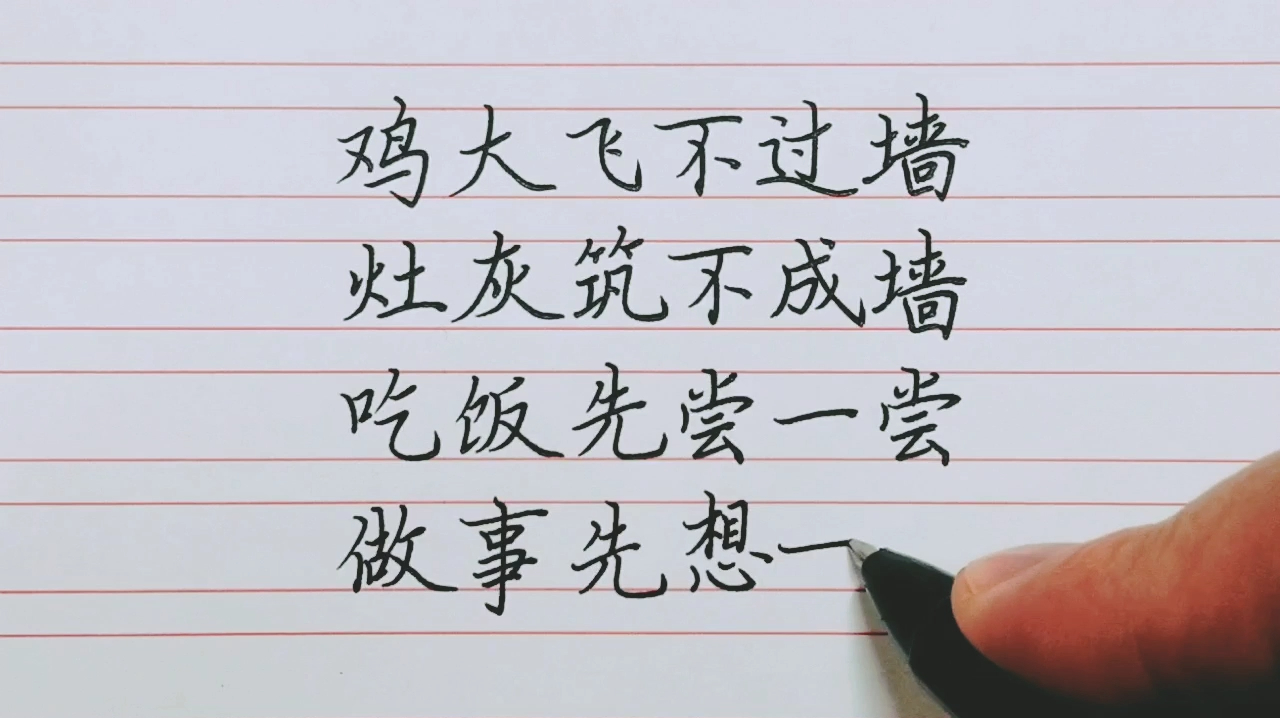 鸡大飞不过墙
灶灰筑不成墙
吃饭先尝一尝
做事先想一